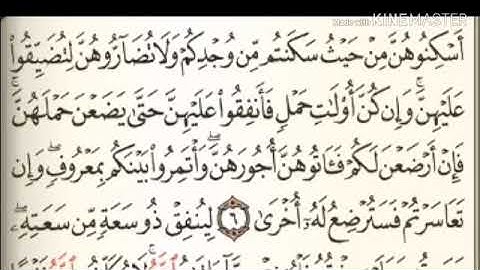 Made with
KINEMASTER
أَسْكِنُوهُنَّ مِنْ حَيْثُ سَكَنتُم مِّن وُجْدِكُمْ وَلَا تُضَآرُّوهُنَّ لِتُضَيِّقُوا۟
عَلَيْهِنَّ ۚ وَإِن كُنَّ أُو۟لَٰتِ حَمْلٍ فَأَنفِقُوا۟ عَلَيْهِنَّ حَتَّىٰ يَضَعْنَ حَمْلَهُنَّ ۚ
فَإِنْ أَرْضَعْنَ لَكُمْ فَـَٔاتُوهُنَّ أُجُورَهُنَّ ۖ وَأْتَمِرُوا۟ بَيْنَكُم بِمَعْرُوفٍ ۖ وَإِن
تَعَاسَرْتُمْ فَسَتُرْضِعُ لَهُۥٓ أُخْرَىٰ ٦ لِيُنفِقْ ذُو سَعَةٍ مِّن سَعَتِهِۦ ۖ